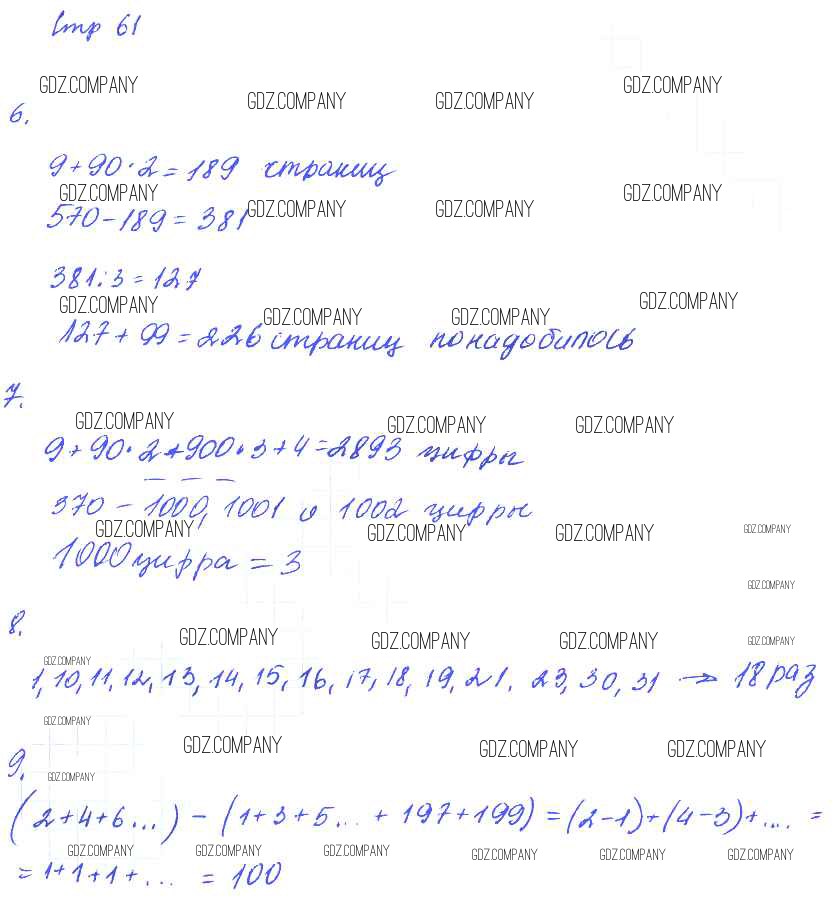 Стр 61
GDZ.COMPANY GDZ.COMPANY GDZ.COMPANY GDZ.COMPANY
6.
9+90·2=189 страниц
GDZ.COMPANY GDZ.COMPANY GDZ.COMPANY GDZ.COMPANY
570-189=381
381:3=127
GDZ.COMPANY GDZ.COMPANY GDZ.COMPANY GDZ.COMPANY
127+99=226 страниц понадобилось
7.
GDZ.COMPANY GDZ.COMPANY GDZ.COMPANY
9+90·2+900·3+4=2893 цифры
370 - 1000, 1001 и 1002 цифры
GDZ.COMPANY GDZ.COMPANY GDZ.COMPANY GDZ.COMPANY
1000 цифра = 3
GDZ.COMPANY
8.
GDZ.COMPANY GDZ.COMPANY GDZ.COMPANY GDZ.COMPANY
GDZ.COMPANY
1, 10, 11, 12, 13, 14, 15, 16, 17, 18, 19, 21. 23, 30, 31 → 18 раз
GDZ.COMPANY
GDZ.COMPANY GDZ.COMPANY GDZ.COMPANY
9.
GDZ.COMPANY
(2+4+6...) - (1+3+5... + 197+199) = (2-1)+(4-3)+.... =
GDZ.COMPANY GDZ.COMPANY GDZ.COMPANY GDZ.COMPANY GDZ.COMPANY GDZ.COMPANY
= 1+1+1+... = 100